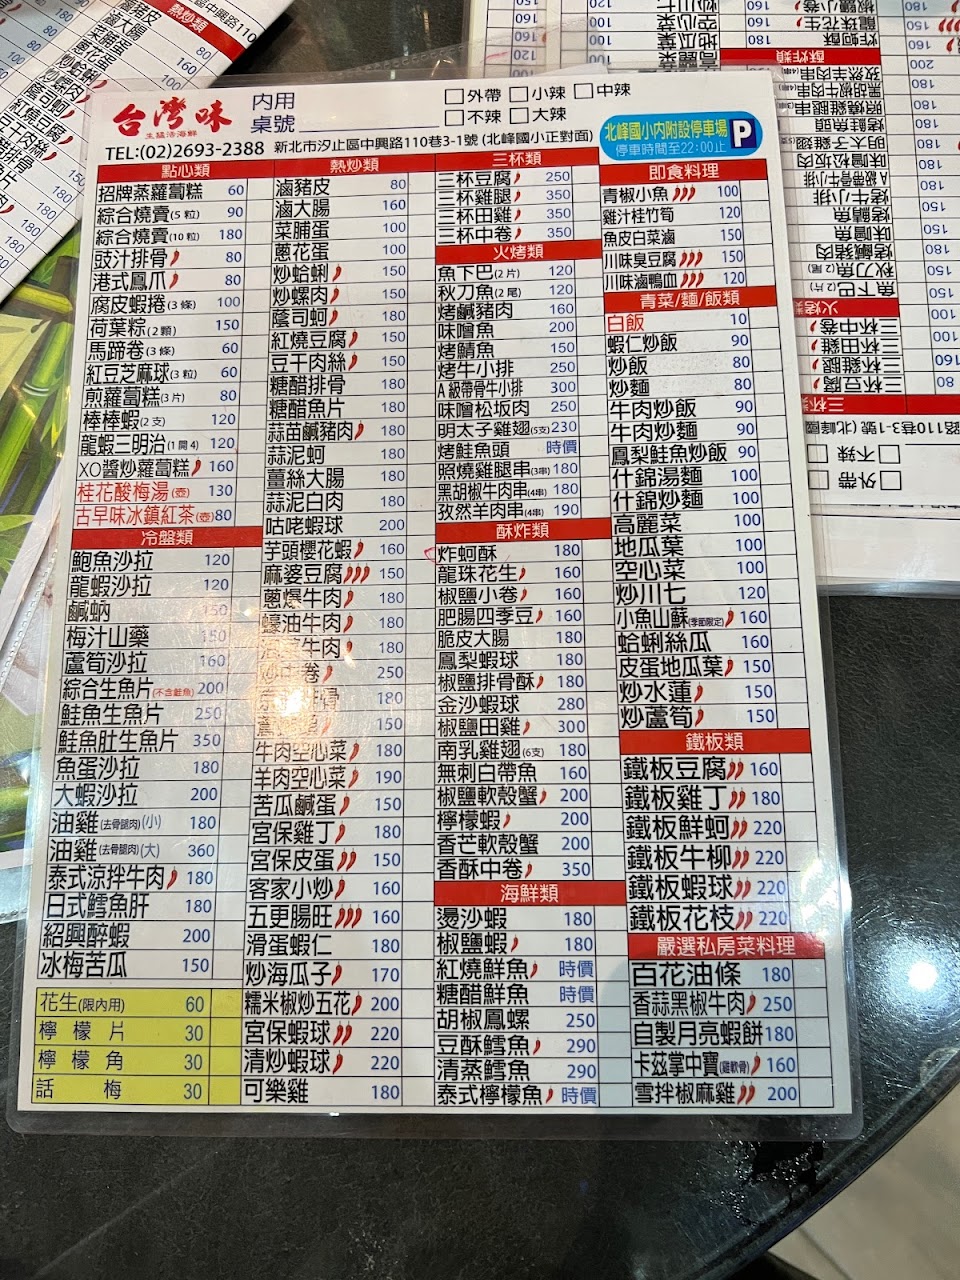 台灣味
生猛活海鮮
內用
桌號
外帶 小辣 中辣
不辣 大辣
TEL:(02)2693-2388 新北市汐止區中興路110巷3-1號 (北峰國小正對面)
北峰國小內附設停車場
停車時間至22:00止
P
點心類
招牌蒸蘿蔔糕 60
綜合燒賣(5粒) 90
綜合燒賣(10粒) 180
豉汁排骨 80
港式鳳爪 80
腐皮蝦捲(3條) 100
荷葉粽(2顆) 150
馬蹄卷(3條) 60
紅豆芝麻球(3粒) 60
煎蘿蔔糕(3片) 80
棒棒蝦(2支) 120
龍蝦三明治(1開4) 120
XO醬炒蘿蔔糕 160
桂花酸梅湯(壺) 130
古早味冰鎮紅茶(壺) 80
冷盤類
鮑魚沙拉 120
龍蝦沙拉 120
鹹蚋 150
梅汁山藥 150
蘆筍沙拉 160
綜合生魚片(不含鮭魚) 200
鮭魚生魚片 250
鮭魚肚生魚片 350
魚蛋沙拉 180
大蝦沙拉 200
油雞(去骨腿肉)(小) 180
油雞(去骨腿肉)(大) 360
泰式涼拌牛肉 180
日式鱈魚肝 180
紹興醉蝦 200
冰梅苦瓜 150
花生(限內用) 60
檸檬片 30
檸檬角 30
話梅 30
熱炒類
滷豬皮 80
滷大腸 160
菜脯蛋 100
蔥花蛋 100
炒蛤蜊 150
炒螺肉 150
蔭司蚵 150
紅燒豆腐 150
豆干肉絲 150
糖醋排骨 180
糖醋魚片 180
蒜苗鹹豬肉 180
蒜泥蚵 180
薑絲大腸 180
蒜泥白肉 180
咕咾蝦球 200
芋頭櫻花蝦 160
麻婆豆腐 150
蔥爆牛肉 180
蠔油牛肉 180
牛肉 180
炒中卷 250
排骨 180
150
牛肉空心菜 180
羊肉空心菜 190
苦瓜鹹蛋 150
宮保雞丁 180
宮保皮蛋 150
客家小炒 160
五更腸旺 160
滑蛋蝦仁 180
炒海瓜子 170
糯米椒炒五花 200
宮保蝦球 220
清炒蝦球 220
可樂雞 180
三杯類
三杯豆腐 250
三杯雞腿 350
三杯田雞 350
三杯中卷 350
火烤類
魚下巴(2片) 120
秋刀魚(2尾) 120
烤鹹豬肉 160
味噌魚 200
烤鯖魚 150
烤牛小排 250
A級帶骨牛小排 300
味噌松坂肉 250
明太子雞翅(5支) 230
烤鮭魚頭 時價
照燒雞腿串(3串) 180
黑胡椒牛肉串(4串) 180
孜然羊肉串(4串) 190
酥炸類
炸蚵酥 180
龍珠花生 160
椒鹽小卷 160
肥腸四季豆 160
脆皮大腸 180
鳳梨蝦球 180
椒鹽排骨酥 180
金沙蝦球 280
椒鹽田雞 300
南乳雞翅(6支) 180
無刺白帶魚 160
椒鹽軟殼蟹 200
檸檬蝦 200
香芒軟殼蟹 200
香酥中卷 350
海鮮類
燙沙蝦 180
椒鹽蝦 180
紅燒鮮魚 時價
糖醋鮮魚 時價
胡椒鳳螺 250
豆酥鱈魚 290
清蒸鱈魚 290
泰式檸檬魚 時價
即食料理
青椒小魚 100
雞汁桂竹筍 120
魚皮白菜滷 150
川味臭豆腐 150
川味滷鴨血 120
青菜/麵/飯類
白飯 10
蝦仁炒飯 90
炒飯 80
炒麵 80
牛肉炒飯 90
牛肉炒麵 90
鳳梨鮭魚炒飯 90
什錦湯麵 100
什錦炒麵 100
高麗菜 100
地瓜葉 100
空心菜 100
炒川七 120
小魚山蘇(季節限定) 160
蛤蜊絲瓜 160
皮蛋地瓜葉 150
炒水蓮 150
炒蘆筍 150
鐵板類
鐵板豆腐 160
鐵板雞丁 180
鐵板鮮蚵 220
鐵板牛柳 220
鐵板蝦球 220
鐵板花枝 220
嚴選私房菜料理
百花油條 180
香蒜黑椒牛肉 250
自製月亮蝦餅 180
卡茲掌中寶(雞軟骨) 160
雪拌椒麻雞 200